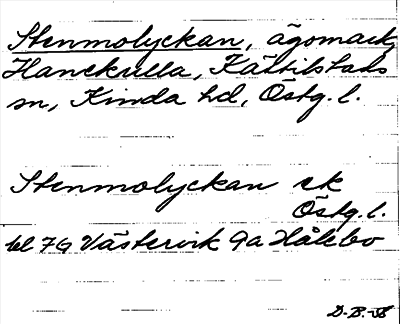 Stenmolyckan, ägomark,
Hanekulla, Kättilstads
sn, Kinda hd, Östg. l.
Stenmolyckan ek
Östg. l.
bl 7G Västervik 9a Hålebo